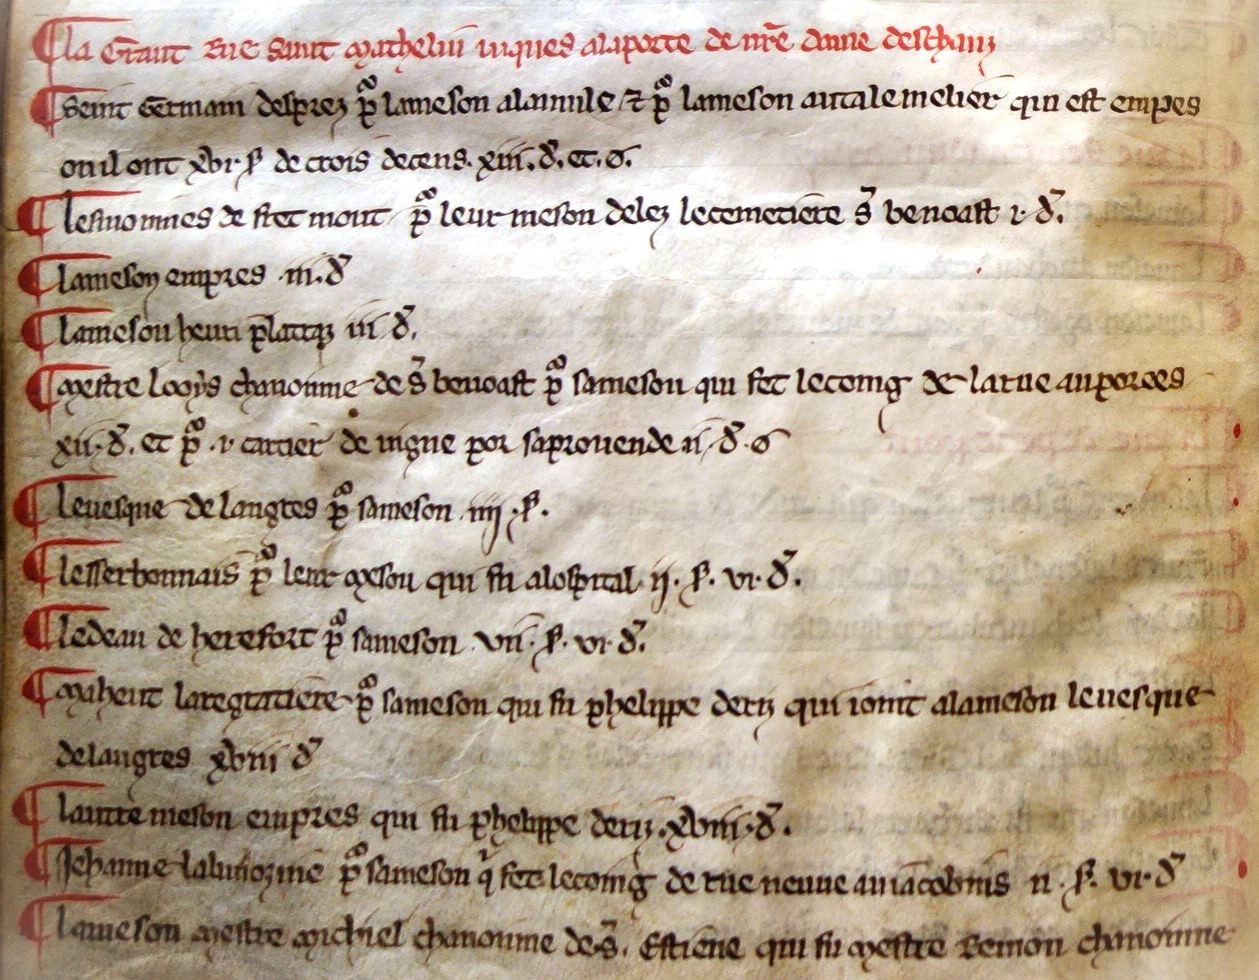 la Grant Rue Saint Mathelin iuques alaporte de nr̃e dame deschanz
Seint Germain desprez pͦ lameson alamule ⁊ pͦ lameson autalemelier qui est empres
ou il ont xvi ſ de crois decens. xiii. d. et. o.
lesnonnies de stet mout pͦ leur meson delez lecemetiere s̃ benoast i. d.
lameson empres .iii. d
lameson henri iii d.
mestre looys chanoinne de s̃ benoast pͦ sameson qui fet lecoing de larue auporees
xii. d. et pͦ .i. cartier de uigne por saprouende ii. d. o
leuesque de langres pͦ sameson .iiij. ſ.
lesserbonnais pͦ leur meson qui fu alospital ij. ſ. vi. d.
ledean de herefort pͦ sameson vii. ſ. vi. d.
maheut laregratiere pͦ sameson qui fu phelippe deriz qui ioint alameson leuesque
delangres xviii d
lautre meson empres qui fu phelippe deriz. xviii. d.
Jehanne pͦ sameson q̃ fet lecoing de rue neuue auiacobins ii. ſ. vi. d
lameson mestre michiel chanoinne de s̃. Estiene qui fu mestre Remon chanoinne